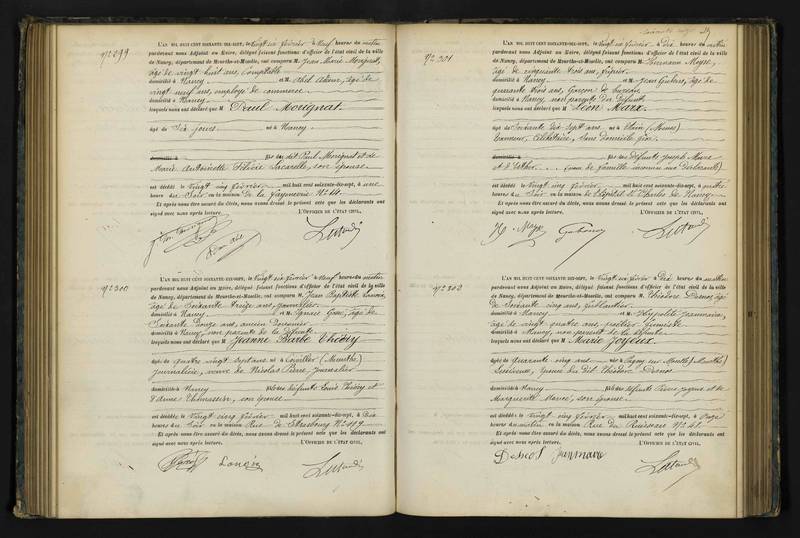 N° 299
L'AN MIL HUIT CENT SOIXANTE-DIX-SEPT, le vingt six février à neuf heures du matin
pardevant nous Adjoint au Maire, délégué faisant fonctions d'officier de l'état civil de la ville
de Nancy, département de Meurthe-et-Moselle, ont comparu M. Jean Marie Morignat,
âgé de vingt huit ans, comptable
domicilié à Nancy et M. Abel Adam, âgé de
vingt neuf ans, employé de commerce
domicilié à Nancy
lesquels nous ont déclaré que M Paul Morignat
âgé de Six jours né à Nancy
domicilié à fils de dit Paul Morignat et de
Marie Antoinette Félicie Lacarelle, son épouse
est décédé, le vingt cinq février mil huit cent soixante-dix-sept, à une
heure du Soir en la maison de la Pépinière N° 44
Et après nous être assuré du décès, nous avons dressé le présent acte que les déclarants ont
signé avec nous après lecture. L'OFFICIER DE L'ÉTAT CIVIL,
N° 300
L'AN MIL HUIT CENT SOIXANTE-DIX-SEPT, le vingt six février à neuf heures du matin
pardevant nous Adjoint au Maire, délégué faisant fonctions d'officier de l'état civil de la ville
de Nancy, département de Meurthe-et-Moselle, ont comparu M. Jean Baptiste
âgé de Soixante treize ans, journalier
domicilié à Nancy et M. Ignace âgé de
Soixante Douze ans, ancien
domicilié à Nancy, non parents de la défunte
lesquels nous ont déclaré que M Jeanne Barbe Thiéry
âgée de quatre vingt sept ans née à (Meurthe)
journalière, veuve de Nicolas Pierre journalier
domiciliée à Nancy fille des défunts Louis Thiéry et
d'Anne Uhlmassin, son épouse
est décédée, le vingt cinq février mil huit cent soixante-dix-sept, à Dix
heures du Soir en la maison Rue de Strasbourg N° 119
Et après nous être assuré du décès, nous avons dressé le présent acte que les déclarants ont
signé avec nous après lecture. L'OFFICIER DE L'ÉTAT CIVIL,
N° 301
L'AN MIL HUIT CENT SOIXANTE-DIX-SEPT, le vingt six février à Dix heures du matin
pardevant nous Adjoint au Maire, délégué faisant fonctions d'officier de l'état civil de la ville
de Nancy, département de Meurthe-et-Moselle, ont comparu M. Hermann Mayer,
âgé de cinquante trois ans, fripier
domicilié à Nancy et M. Jean âgé de
quarante trois ans, Garçon de bureau
domicilié à Nancy, non parents du Défunt
lesquels nous ont déclaré que M Léon Marx
âgé de Soixante dix Sept ans né à Etain (Meuse)
Célibataire, Sans domicile fixe
domicilié à fils des défunts Joseph Marx
et d'Esther (nom de famille inconnu aux déclarants)
est décédé, le vingt cinq février mil huit cent soixante-dix-sept, à quatre
heures du Soir en la maison de l'hôpital St Charles de Nancy
Et après nous être assuré du décès, nous avons dressé le présent acte que les déclarants ont
signé avec nous après lecture. L'OFFICIER DE L'ÉTAT CIVIL,
N° 302
L'AN MIL HUIT CENT SOIXANTE-DIX-SEPT, le vingt six février à Dix heures du matin
pardevant nous Adjoint au Maire, délégué faisant fonctions d'officier de l'état civil de la ville
de Nancy, département de Meurthe-et-Moselle, ont comparu M. Théodore Desnos, âgé
de Soixante cinq ans, ferblantier
domicilié à Nancy et M. Hippolite Janmaire,
âgé de vingt quatre ans, facteur
domicilié à Nancy, non parent de la défunte
lesquels nous ont déclaré que M Marie Joyeux
âgée de Quarante cinq ans née à Pagny sur Meurthe (Meurthe)
Epouse du dit Théodore Desnos
domiciliée à Nancy fille des défunts Pierre Joyeux et de
Marguerite son épouse
est décédée, le vingt cinq février mil huit cent soixante-dix-sept, à Onze
heures du matin en la maison Rue du Ruisseau N° 41
Et après nous être assuré du décès, nous avons dressé le présent acte que les déclarants ont
signé avec nous après lecture. L'OFFICIER DE L'ÉTAT CIVIL,
Desnos Janmaire